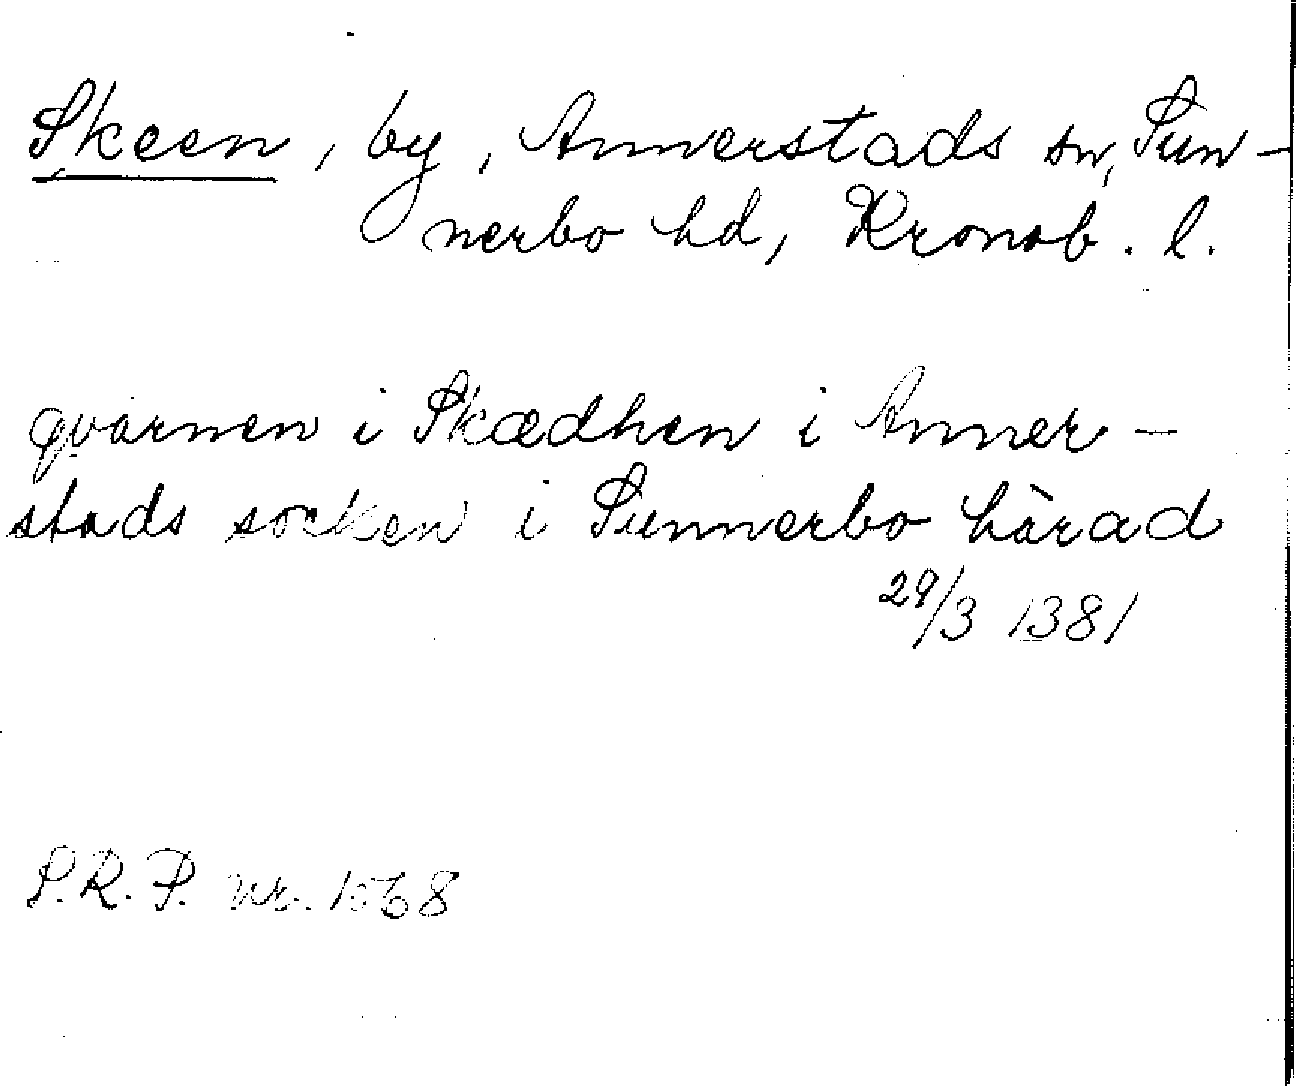 Skeen, by, Annerstads sn, Sun-
nerbo hd, Kronob. l.
qvarnen i Skædhen i Anner-
stads socken i Sunnerbo härad
29/3 1381
S.R.P. nr. 1568